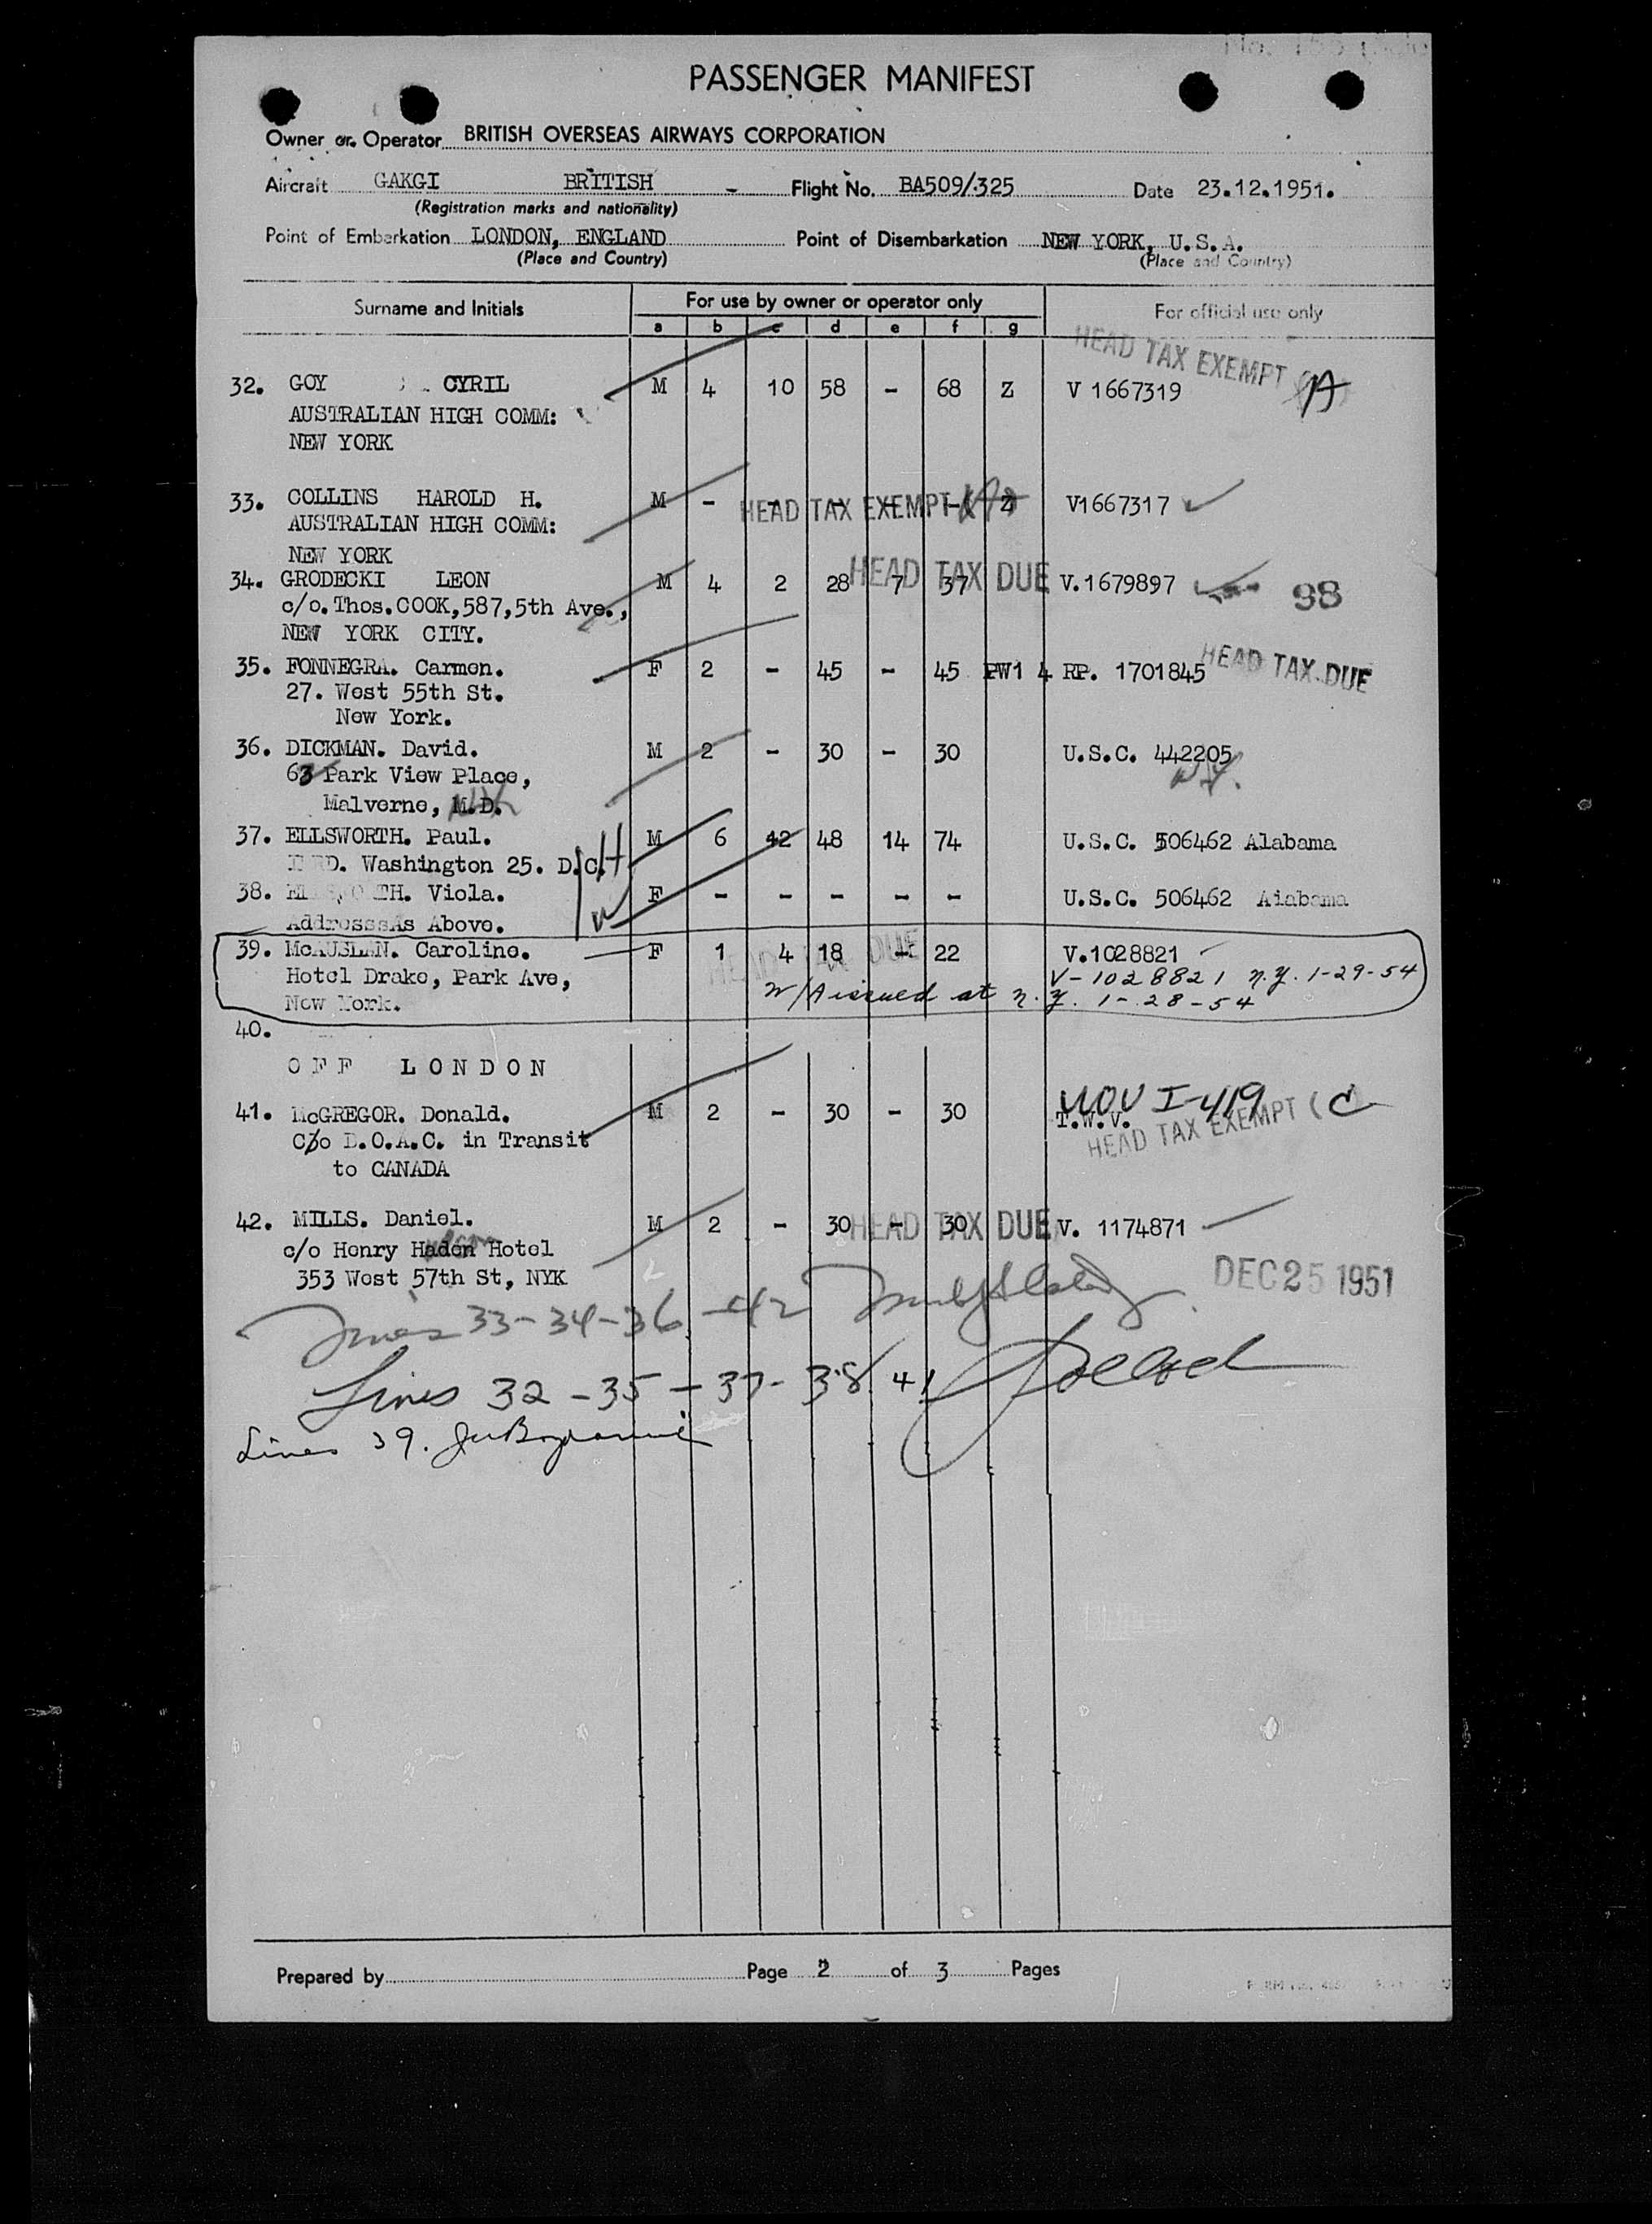 PASSENGER MANIFEST
Owner or Operator BRITISH OVERSEAS AIRWAYS CORPORATION
Aircraft GAKGI BRITISH - Flight No. BA509/325 Date 23.12.1951.
(Registration marks and nationality)
Point of Embarkation LONDON, ENGLAND Point of Disembarkation NEW YORK, U.S.A.
(Place and Country) (Place and Country)
Surname and Initials For use by owner or operator only For official use only
a b c d e f g
HEAD TAX EXEMPT
32. GOY CYRIL M 4 10 58 - 68 Z V 1667319 A
AUSTRALIAN HIGH COMM:
NEW YORK
33. COLLINS HAROLD H. M - - - - - Z V1667317
HEAD TAX EXEMPT
AUSTRALIAN HIGH COMM:
NEW YORK
34. GRODECKI LEON M 4 2 28 7 37 V.1679897 98
HEAD TAX DUE
c/o.Thos.COOK,587,5th Ave.,
NEW YORK CITY.
35. FONNEGRA. Carmen. F 2 - 45 - 45 PW1 4 RP. 1701845
HEAD TAX DUE
27. West 55th St.
New York.
36. DICKMAN. David. M 2 - 30 - 30 U.S.C. 442205
63 Park View Place, N.Y.
Malverne, M.D.
37. ELLSWORTH. Paul. M 6 12 48 14 74 U.S.C. 506462 Alabama
Washington 25. D.C. H
38. ELLSWORTH. Viola. F - - - - - U.S.C. 506462 Alabama
AddresssAs Above. W
39. McAUSLAN. Caroline. F 1 4 18 - 22 V.1028821
HEAD TAX DUE
Hotel Drake, Park Ave, V-1028821 N.Y. 1-29-54
New York. W/A issued at N.Y. 1-28-54
40.
OFF LONDON
41. McGREGOR. Donald. M 2 - 30 - 30 T.W.V. I-419
HEAD TAX EXEMPT (C
C/o B.O.A.C. in Transit
to CANADA
42. MILLS. Daniel. M 2 - 30 - 30 V. 1174871
HEAD TAX DUE
c/o Henry Haden Hotel
353 West 57th St, NYK
DEC 25 1951
Lines 33-34-36-42
Lines 32-35-37-38 41
Lines 39.
Prepared by Page 2 of 3 Pages